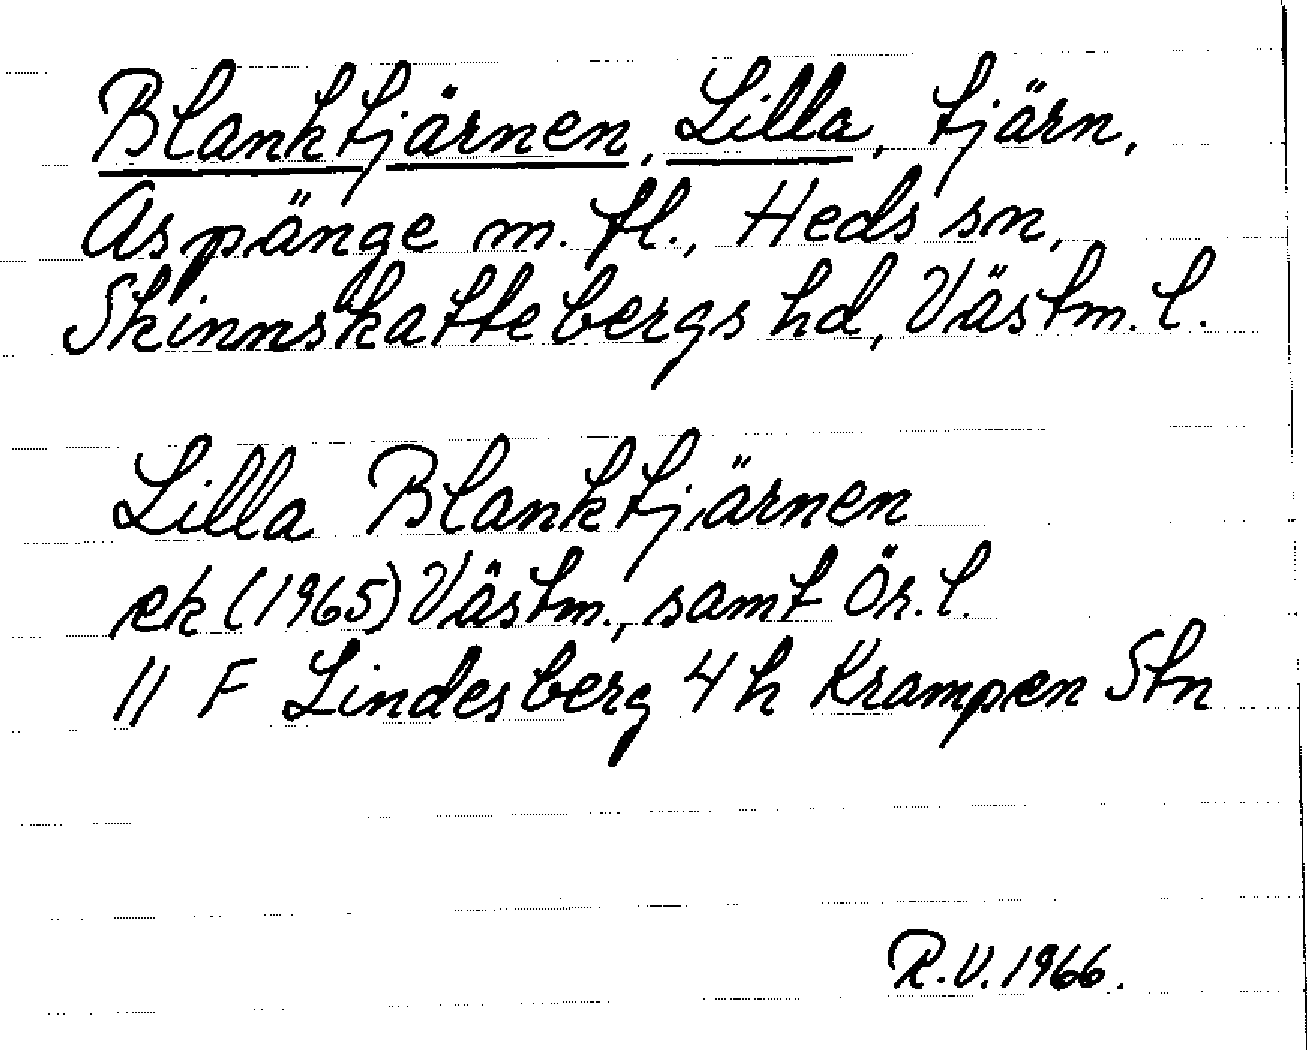 Blanktjärnen, Lilla, tjärn,
Aspänge m. fl., Heds sn,
Skinnskattebergs hd, Västm. l.
Lilla Blanktjärnen
ek (1965) Västm., samt Ör. l.
11 F Lindesberg 4 h Krampen Stn
R.V. 1966.